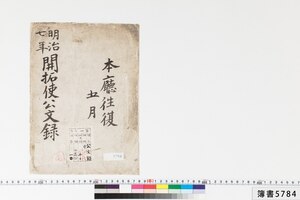 本廳往復
五月
明治
七年
開拓使公文録
5784
簿書5784